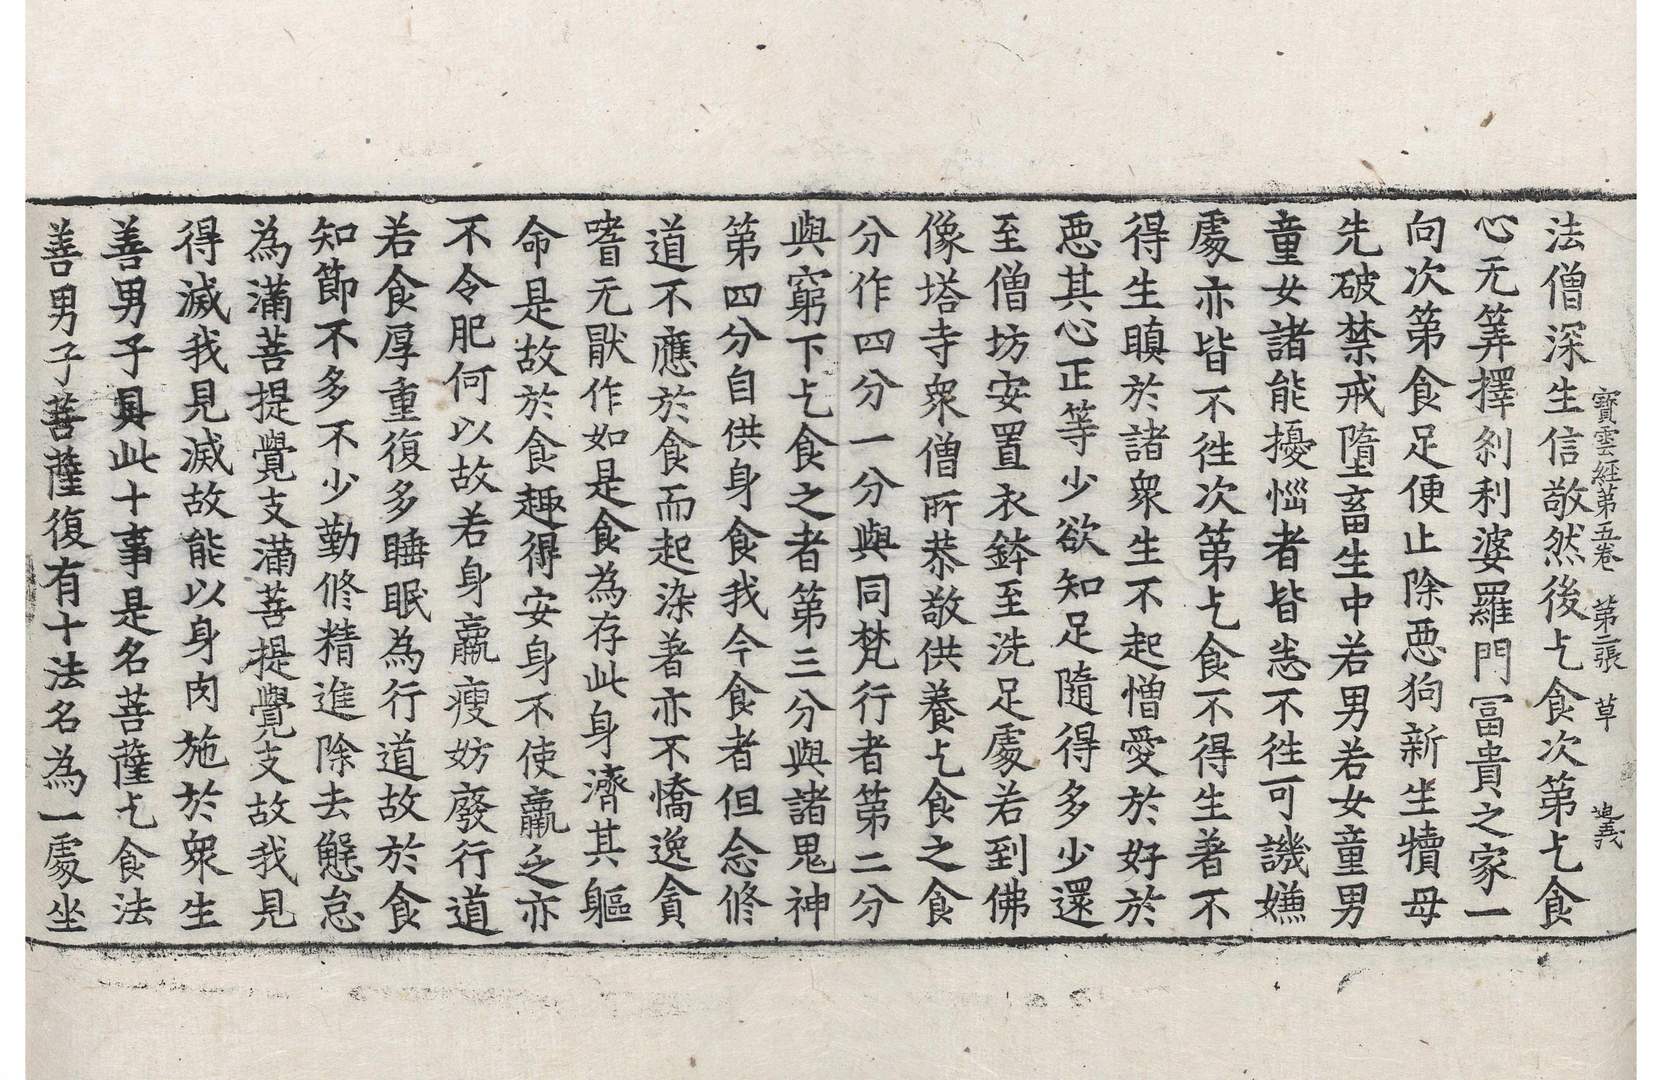 寶雲經第五卷　第二張　草
法僧深生信敬然後乞食次第乞食
心无筭擇刹利婆羅門冨貴之家一
向次第食足便止除惡狗新生犢母
先破禁戒墮畜生中若男若女童男
童女諸能擾惱者皆悉不徃可譏嫌
處亦皆不徃次第乞食不得生著不
得生瞋於諸衆生不起憎愛於好於
惡其心正等少欲知足隨得多少還
至僧坊安置衣鉢至洗足處若到佛
像塔寺衆僧所恭敬供養乞食之食
分作四分一分與同梵行者第二分
與窮下乞食之者第三分與諸鬼神
第四分自供身食我今食者但念修
道不應於食而起染著亦不憍逸貪
嗜无猒作如是食為存此身濟其軀
命是故於食趣得安身不使羸乏亦
不令肥何以故若身羸瘦妨廢行道
若食厚重復多睡眠為行道故於食
知節不多不少勤修精進除去懈怠
為滿菩提覺支滿菩提覺支故我見
得滅我見滅故能以身肉施於衆生
善男子具此十事是名菩薩乞食法
善男子菩薩復有十法名為一處坐